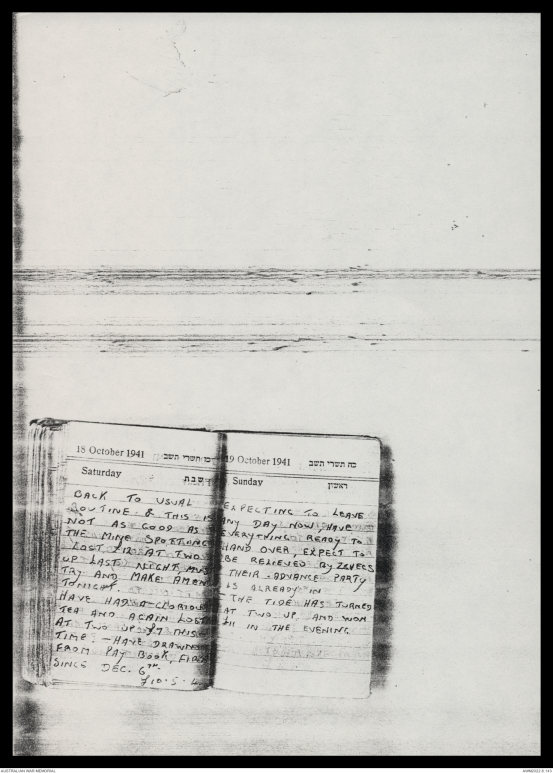 18 October 1941 כז תשרי תשב
Saturday שבת
BACK TO USUAL
ROUTINE & THIS IS
NOT AS GOOD AS
THE MINE SPOTTING
LOST £12 AT TWO
UP LAST NIGHT, MUST
TRY AND MAKE AMEN
TONIGHT.
HAVE HAD A GLORIOUS
TEA AND AGAIN LOST
AT TWO UP £7 THIS
TIME. — HAVE DRAWN
FROM PAY BOOK, FIRST
SINCE DEC. 6TH.
£10.5.
19 October 1941 כח תשרי תשב
Sunday ראשון
EXPECTING TO LEAVE
ANY DAY NOW, HAVE
EVERYTHING READY TO
HAND OVER, EXPECT TO
BE RELIEVED BY
THEIR ADVANCE PARTY
IS ALREADY IN
— THE TIDE HAS TURNED
AT TWO UP AND WON
£11 IN THE EVENING.
AUSTRALIAN WAR MEMORIAL